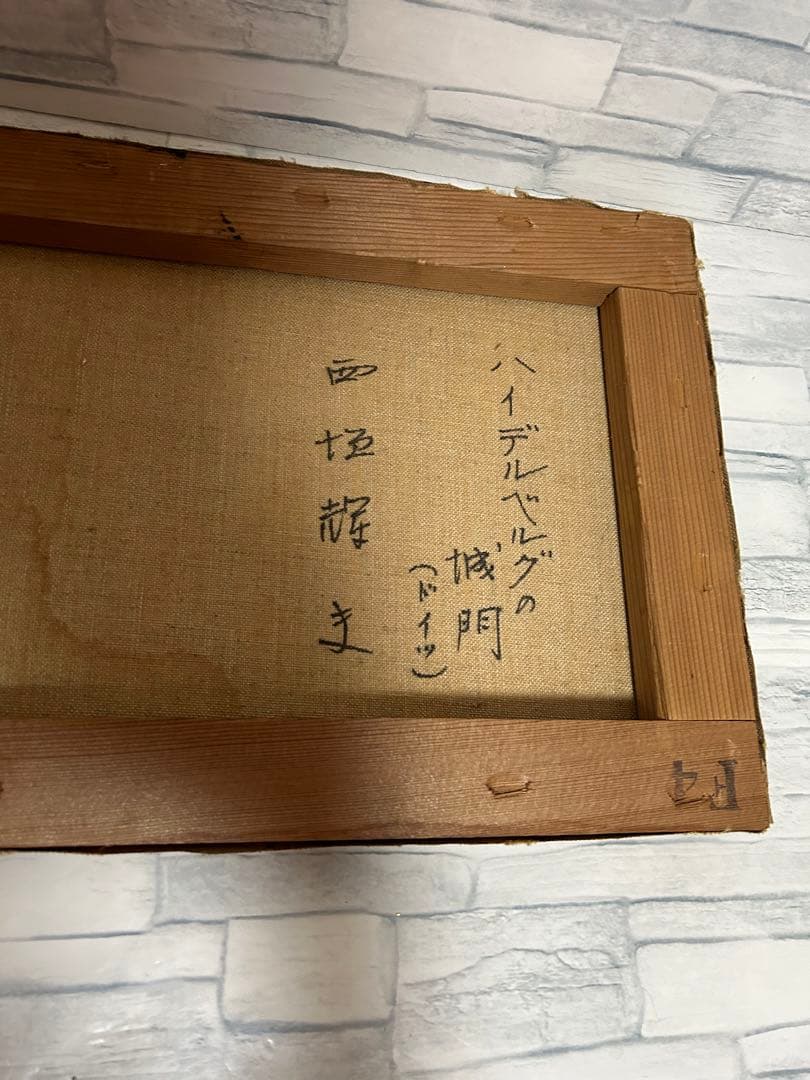 ハイデルベルグの
城門
(ドイツ)
西垣輝
F4